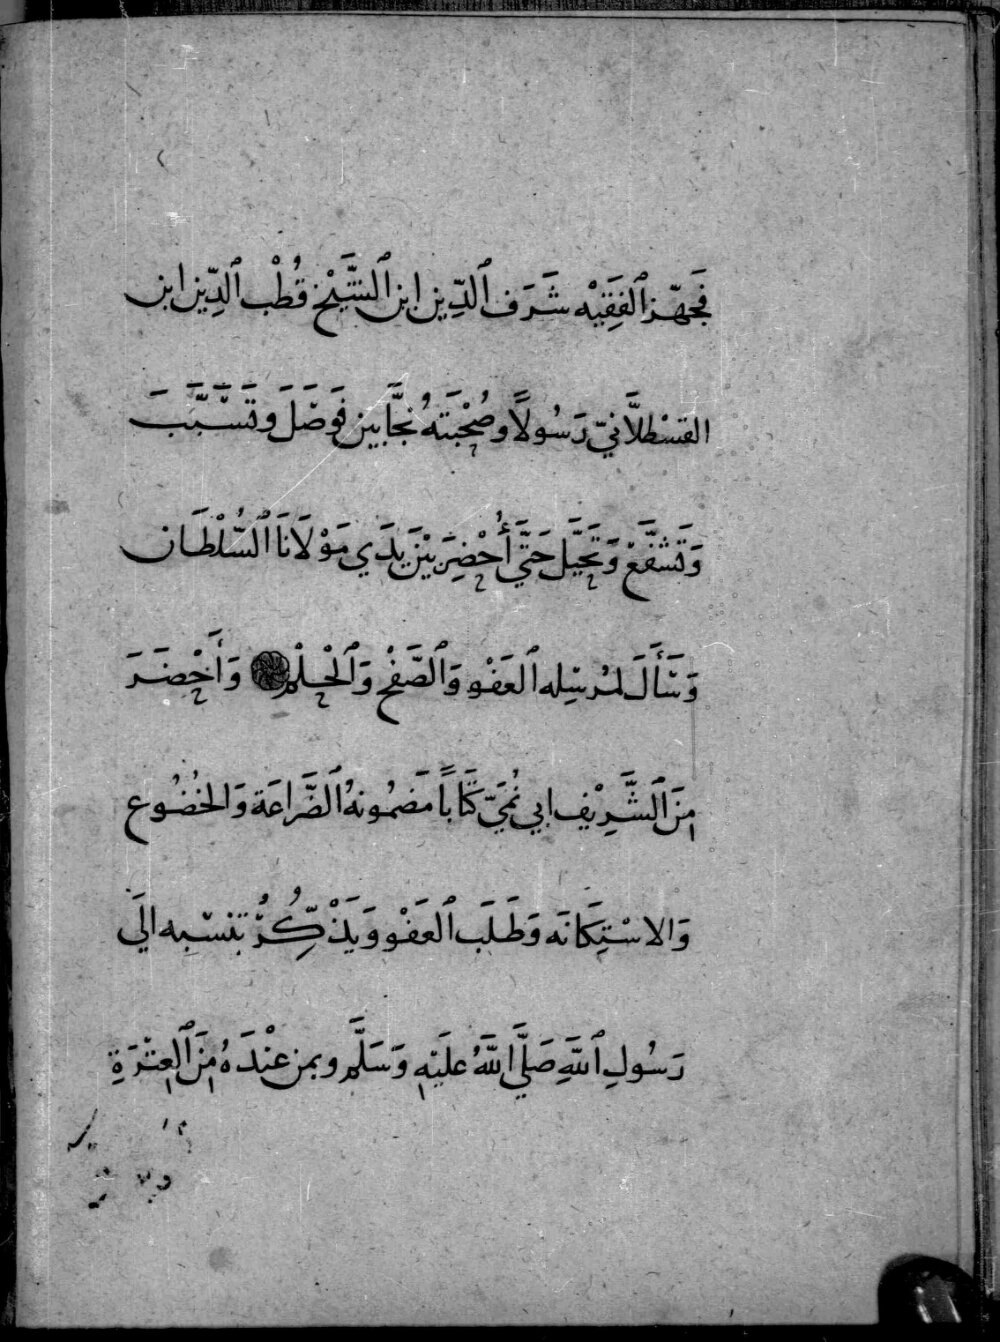 فَجَهّز ٱلفَقِيْه شَرَف ٱلدِّين ابن ٱلشَّيْخ قُطْب ٱلدِّين ابن
القسْطلاَّنيّ رَسُولاً وصُحْبَتَهُ نجَّابين فَوَصَلَ وتَسَبَّبَ
وَتَشَفَّعْ وَتَحَيَّل حَتَّي أُحْضِرَ بَيْنَ يدَي مَوْلَانَا ٱلسُّلْطَان
وَسَأَلَ لمُرسْلِه ٱلعَفْو وَٱلصَّفْح وَٱلْحِلْم وَأَحْضَرَ
مِنَ ٱلشَّرِيْف ابي نُمَيّ كتَاباً مَضمُونهُ ٱلضَّرَاعَة وَالخُضُوع
وَالاسْتِكَانَه وَطَلَب ٱلعَفْو وَيَذْكِّرُ بنسْبِه الَي
رَسُولِ ٱللَّهِ صَلَّي ٱللَّهُ عَلَيْهِ وَسَلَّم وبمن عنْدَهُ مِنَ ٱلعِتْرَةِ